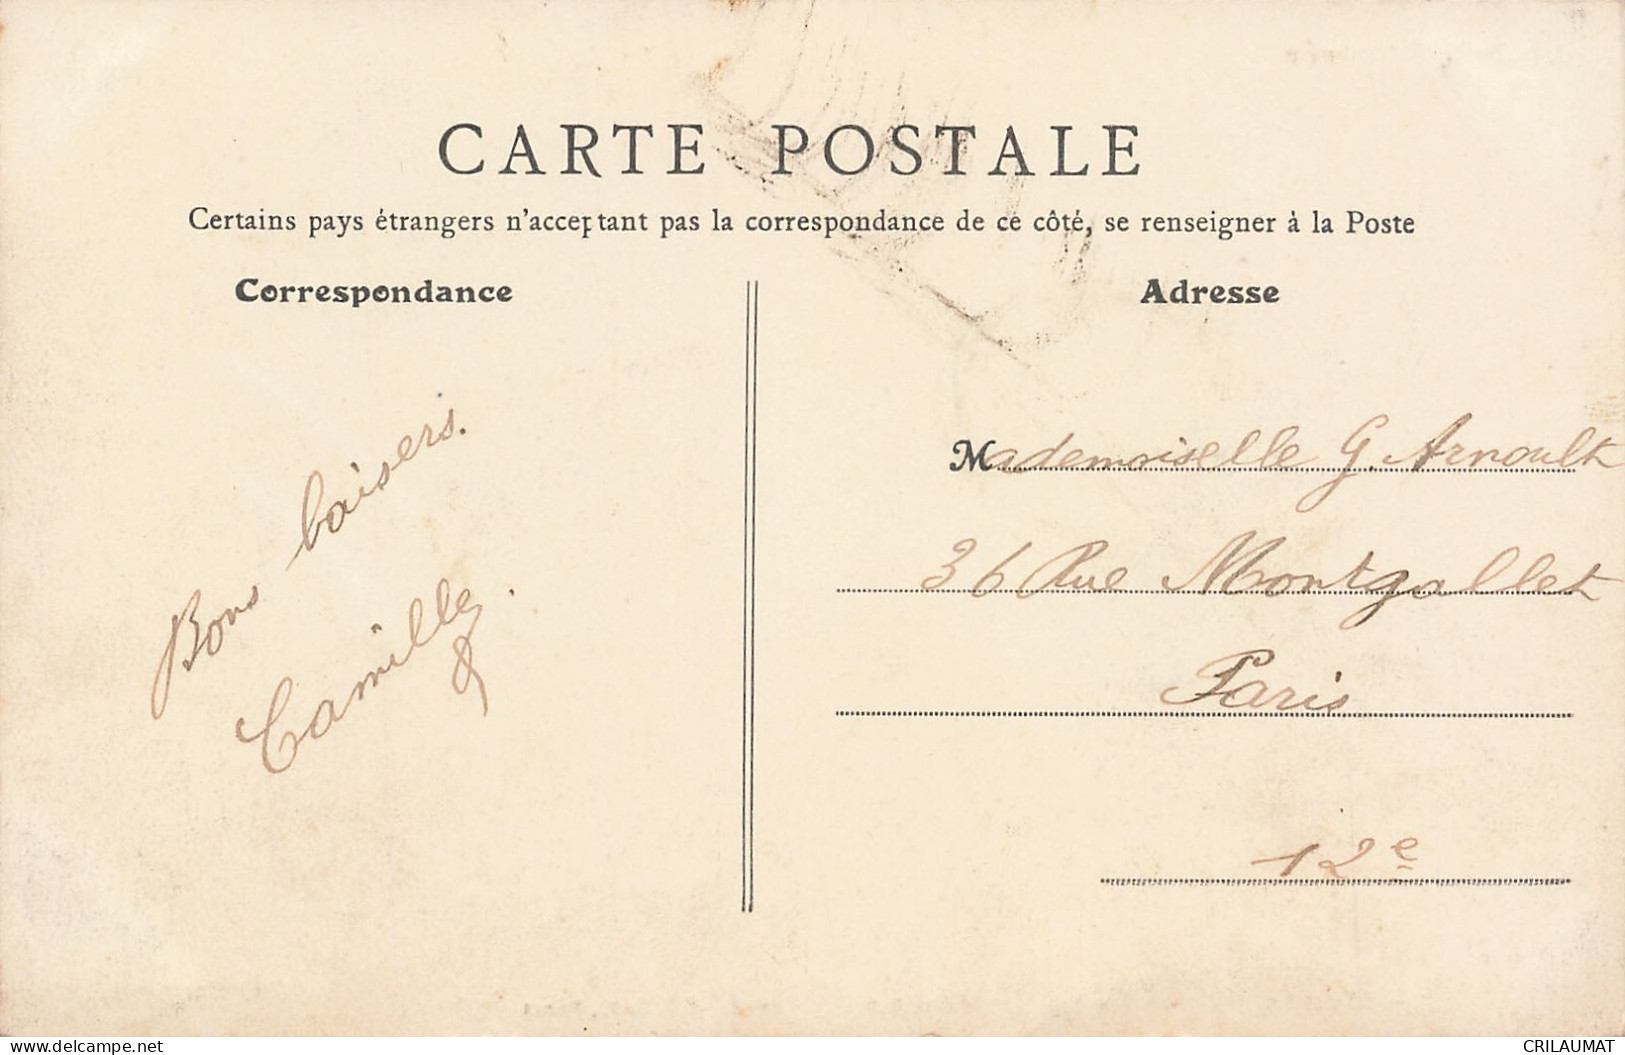 CARTE POSTALE
Certains pays étrangers n'acceptant pas la correspondance de ce côté, se renseigner à la Poste
Correspondance
Adresse
Bons baisers.
Camille.
Mademoiselle G. Arnoult
36 Rue Montgallet
Paris
12e
www.delcampe.net
CRILAUMAT